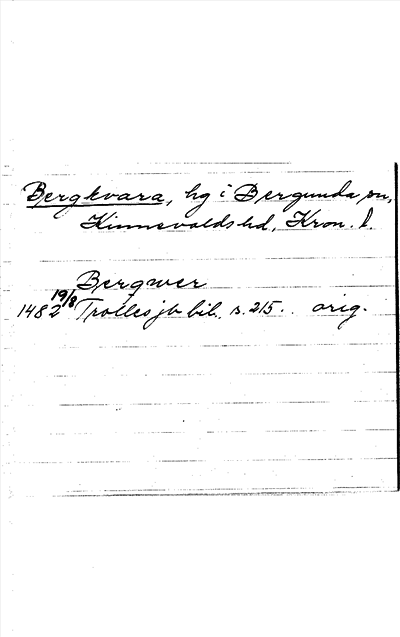 Bergkvara, hg i Bergunda sn,
Kinnevalds hd, Kron. l.
Bergwer
1482 19/8 Trolles jb bil. s. 215. orig.